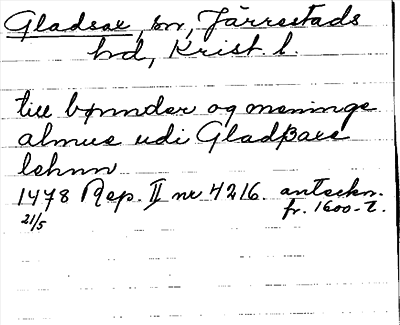 Gladsax, sn, Järrestads
hd, Krist. l.
till bønnder og menninge
almue udi Gladßaxe
lehnn
1478 Rep. II nr 4216. anteckn.
21/5 fr. 1600-t.